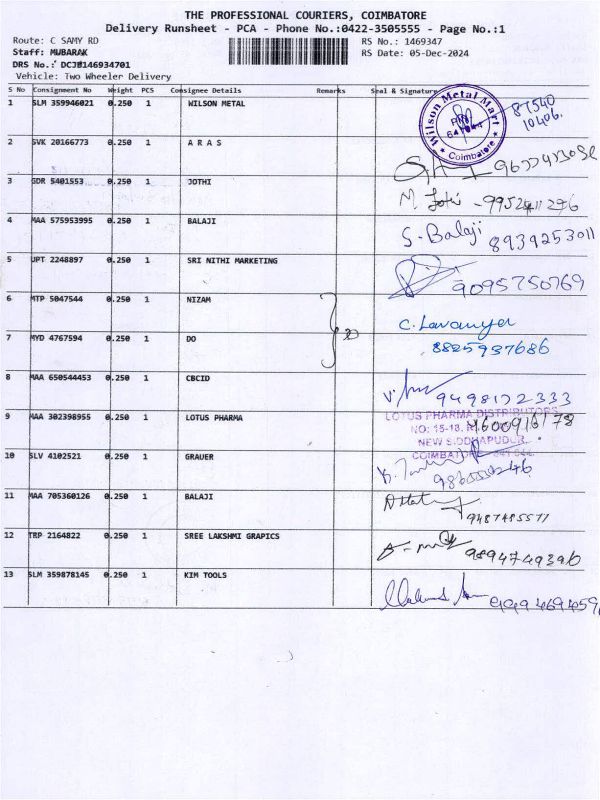 THE PROFESSIONAL COURIERS, COIMBATORE
Delivery Runsheet - PCA - Phone No.:0422-3505555 - Page No.:1
Route: C SAMY RD RS No.: 1469347
Staff: MUBARAK RS Date: 05-Dec-2024
DRS No.: DCJB146934701
Vehicle: Two Wheeler Delivery
S No Consignment No Weight PCS Consignee Details Remarks Seal & Signature
1 SLM 359946021 0.250 1 WILSON METAL Wilson Metal Mart Coimbatore 87540
10406.
2 SVK 20166773 0.250 1 A R A S
3 GDR 5401553 0.250 1 JOTHI M. Jothi - 9952411296
4 MAA 575953995 0.250 1 BALAJI S. Balaji 8939253011
5 JPT 2248897 0.250 1 SRI NITHI MARKETING 9095750769
6 MTP 5047544 0.250 1 NIZAM C. Lavanya
7 MYD 4767594 0.250 1 DO 8825937686
8 MAA 650544453 0.250 1 CBCID 9498122333
9 MAA 302398955 0.250 1 LOTUS PHARMA LOTUS PHARMA DISTRIBUTORS
NO: 15-18,
NEW SIDDHAPUDUR,
COIMBATORE - 641 044.
10 SLV 4102521 0.250 1 GRAUER
11 MAA 705360126 0.250 1 BALAJI 9487485577
12 TRP 2164822 0.250 1 SREE LAKSHMI GRAPICS 9894749390
13 SLM 359878145 0.250 1 KIM TOOLS 9994694459